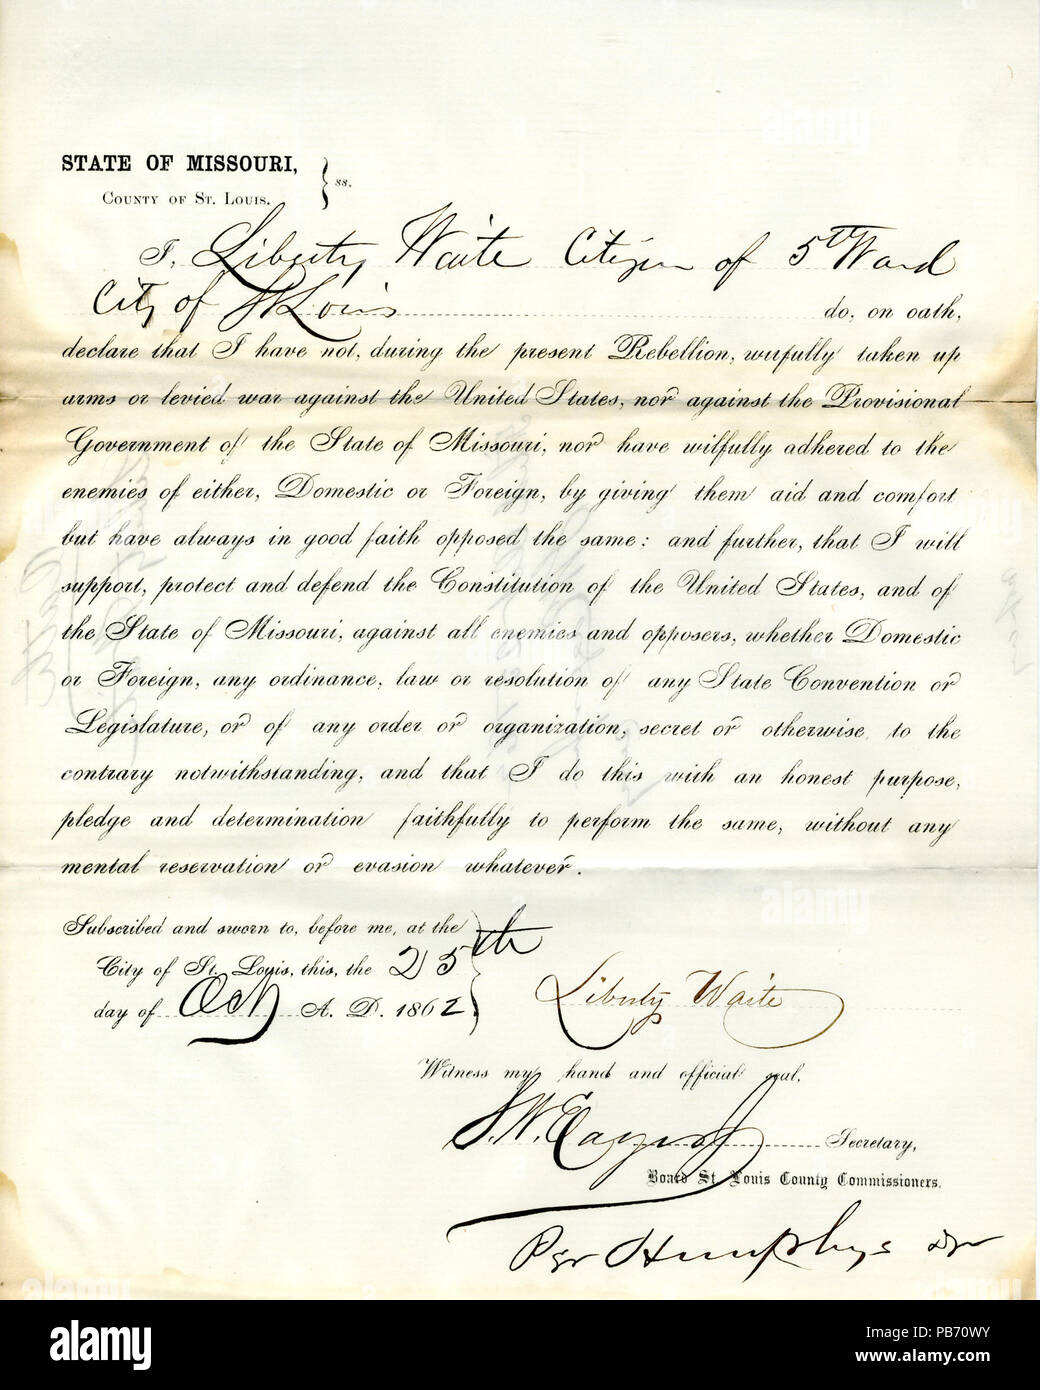 STATE OF MISSOURI,
COUNTY OF ST. LOUIS. } ss.
I, Liberty Waite Citizen of 5th Ward
City of St Louis do, on oath,
declare that I have not, during the present Rebellion, wilfully taken up
arms or levied war against the United States, nor against the Provisional
Government of the State of Missouri, nor have wilfully adhered to the
enemies of either, Domestic or Foreign, by giving them aid and comfort
but have always in good faith opposed the same: and further, that I will
support, protect and defend the Constitution of the United States, and of
the State of Missouri, against all enemies and opposers, whether Domestic
or Foreign, any ordinance, law or resolution of any State Convention or
Legislature, or of any order or organization, secret or otherwise, to the
contrary notwithstanding, and that I do this with an honest purpose,
pledge and determination faithfully to perform the same, without any
mental reservation or evasion whatever.
Subscribed and sworn to, before me, at the
City of St. Louis, this, the 25th
day of Oct A. D. 1862
Liberty Waite
Witness my hand and official seal,
Secretary,
Board St. Louis County Commissioners.
Per Humphrys
alamy
Image ID: PB70WY
www.alamy.com